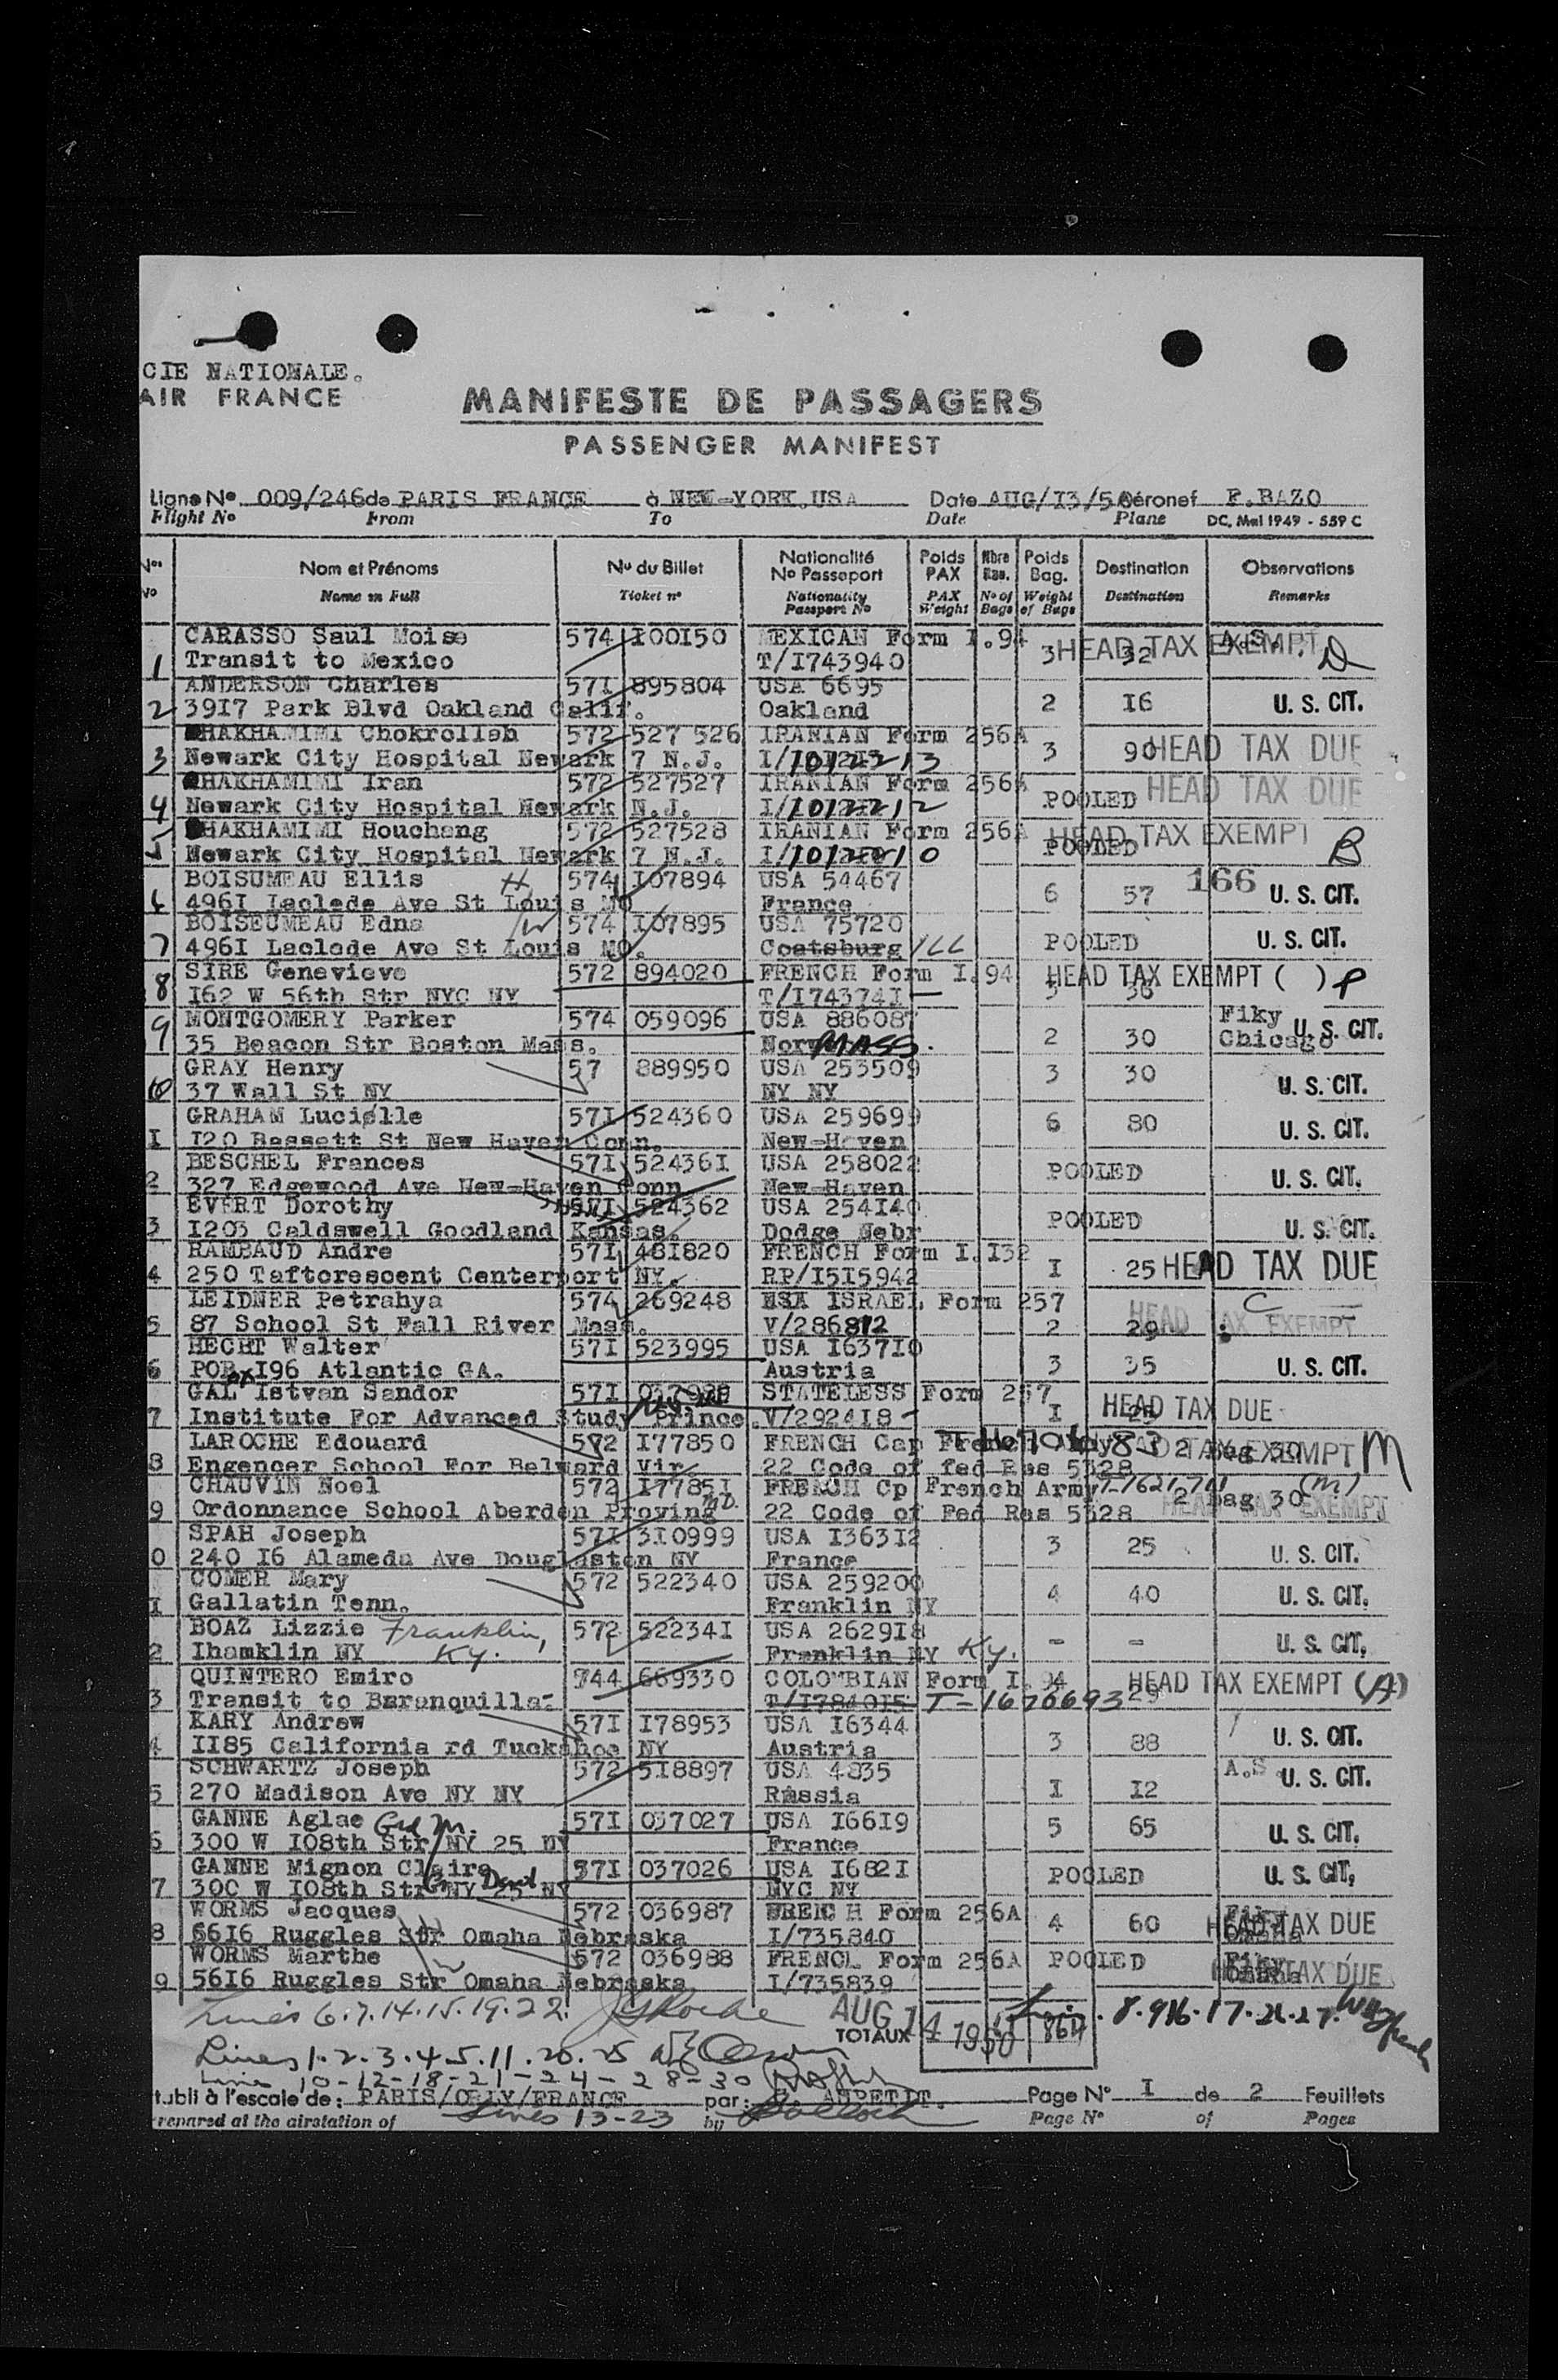 CIE NATIONALE.
AIR FRANCE
MANIFESTE DE PASSAGERS
PASSENGER MANIFEST
Ligne No 009/246 de PARIS FRANCE à NEW-YORK.USA Date AUG/I3/50 Aéronef F.BAZO
Flight No From To Date Plane DC. Mai 1949 - 559 C
Nos Nom et Prénoms No du Billet Nationalité No Passeport Poids PAX Nbre Bag. Poids Bag. Destination Observations
No Name in Full Ticket no Nationality Passport No PAX Weight No of Bags Weight of Bags Destination Remarks
CARASSO Saul Moise 574 I00I50 MEXICAN Form I.94 A.S.
1 Transit to Mexico T/I743940 3 32 HEAD TAX EXEMPT
ANDERSON Charles 57I 895804 USA 6695
2 39I7 Park Blvd Oakland Calif. Oakland 2 I6 U. S. CIT.
HAKHAMIMI Chokrollah 572 527 526 IRANIAN Form 256A
3 Newark City Hospital Newark 7 N.J. I/1012213 3 90 HEAD TAX DUE
HAKHAMIMI Iran 572 527527 IRANIAN Form 256A
4 Newark City Hospital Newark N.J. I/1012212 POOLED HEAD TAX DUE
HAKHAMIMI Houchang 572 527528 IRANIAN Form 256A
5 Newark City Hospital Newark 7 N.J. I/ POOLED HEAD TAX EXEMPT B
BOISUMEAU Ellis H 574 I07894 USA 54467 166
6 496I Laclede Ave St Louis MO France 6 57 U. S. CIT.
BOISEUMEAU Edna W 574 I07895 USA 75720
7 496I Laclede Ave St Louis MO. Coatsburg ILL POOLED U. S. CIT.
SIRE Genevieve 572 894020 FRENCH Form I.94 HEAD TAX EXEMPT ( ) P
8 I62 W 56th Str NYC NY T/I74374I
MONTGOMERY Parker 574 059096 USA 886087 Fiky
9 35 Beacon Str Boston Mass. MASS. 2 30 Chicago U. S. CIT.
GRAY Henry 57 889950 USA 253509 3 30
10 37 Wall St NY NY NY U. S. CIT.
GRAHAM Lucielle 57I 524360 USA 259699 6 80
I I20 Bassett St New Haven Conn. New-Haven U. S. CIT.
BESCHEL Frances 57I 52436I USA 258022 POOLED
2 327 Edgewood Ave New-Haven Conn New-Haven U. S. CIT.
EVERT Dorothy 57I 524362 USA 254I40 POOLED
3 I203 Caldswell Goodland Kansas. Dodge Nebr U. S. CIT.
RAMBAUD Andre 57I 48I820 FRENCH Form I.I32
4 250 Taftcrescent Centerport NY. RP/I5I5942 I 25 HEAD TAX DUE
LEIDNER Petrahya 574 269248 ISRAEL Form 257 C
5 87 School St Fall River Mass. V/286812 2 29 HEAD TAX EXEMPT
HECHT Walter 57I 523995 USA I637I0
6 POB I96 Atlantic GA. Austria 3 35 U. S. CIT.
GAL Istvan Sandor 57I STATELESS Form 257
7 Institute For Advanced Study Prince. V/2924I8 I HEAD TAX DUE
LAROCHE Edouard 572 I77850 FRENCH Cap French Army 2 Bag 30 HEAD TAX EXEMPT M
8 Engeneer School For Belward Vir. 22 Code of fed Res 5328
CHAUVIN Noel 572 I7785I FRENCH Cp French Army T-1621711 (M)
9 Ordonnance School Aberden Proving MD. 22 Code of Fed Res 5328 2 bag 30 HEAD TAX EXEMPT
SPAH Joseph 57I 3I0999 USA I363I2
0 240 I6 Alameda Ave Douglaston NY France 3 25 U. S. CIT.
COMER Mary 572 522340 USA 259200
I Gallatin Tenn. Franklin NY 4 40 U. S. CIT.
BOAZ Lizzie Franklin, 572 52234I USA 2629I8
2 Ihamklin NY Ky. Franklin NY Ky. - - U. S. CIT.
QUINTERO Emiro 744 669330 COLOMBIAN Form I.94 HEAD TAX EXEMPT (A)
3 Transit to Baranquilla. T/I7840I5 T-1676693 29
KARY Andrew 57I I78953 USA I6344
4 II85 California rd Tuckahoe NY Austria 3 88 U. S. CIT.
SCHWARTZ Joseph 572 5I8897 USA 4835 A.S.
5 270 Madison Ave NY NY Russia I I2 U. S. CIT.
GANNE Aglae Gd M. 57I 037027 USA I66I9
6 300 W I08th Str NY 25 NY France 5 65 U. S. CIT.
GANNE Mignon Claire 57I 037026 USA I682I
7 300 W I08th Str NY 25 NY NYC NY POOLED U. S. CIT.
WORMS Jacques 572 036987 FRENCH Form 256A Fiky
8 56I6 Ruggles Str Omaha Nebraska I/735840 4 60 Omaha HEAD TAX DUE
WORMS Marthe W 572 036988 FRENCL Form 256A POOLED Fiky
9 56I6 Ruggles Str Omaha Nebraska I/735839 Omaha HEAD TAX DUE
Lines 6.7.14.15.19.22.
AUG 14 1950
TOTAUX 864
Lines 1.2.3.4.5.11.20.25
Line 10-12-18-21-24-28-30
établi à l'escale de: PARIS/ORLY/FRANCE par: AMPETIT. Page No I de 2 Feuillets
Prepared at the airstation of Lines 13-23 by Page No of Pages